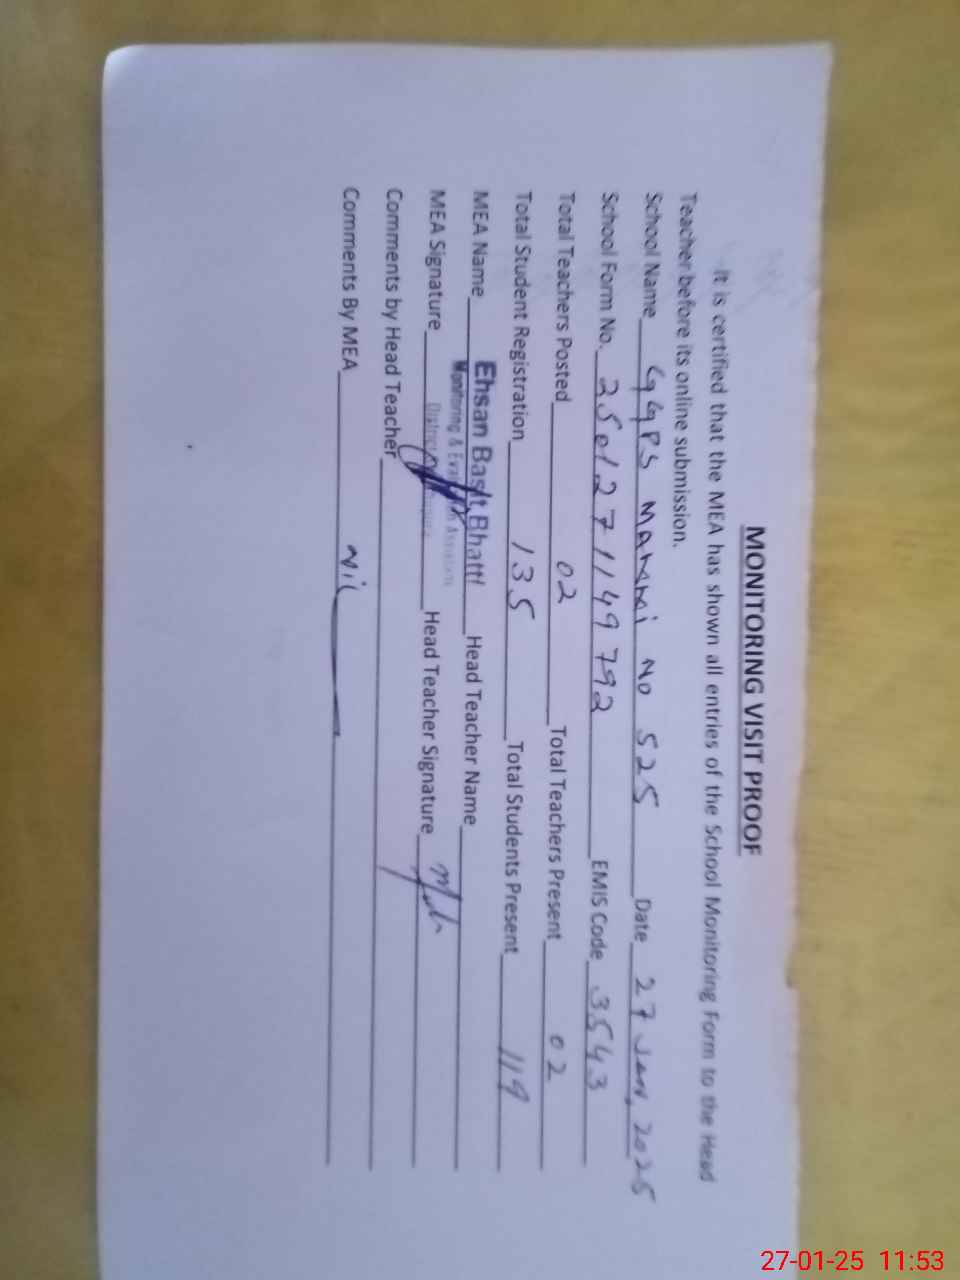 MONITORING VISIT PROOF
It is certified that the MEA has shown all entries of the School Monitoring Form to the Head
Teacher before its online submission.
School Name GGPS Mammi No 525 Date 27 Jan, 2025
School Form No. 2501271149792 EMIS Code 3543
Total Teachers Posted 02 Total Teachers Present 02
Total Student Registration 135 Total Students Present 119
MEA Name Ehsan Basit Bhatti Head Teacher Name
Monitoring &
MEA Signature District Head Teacher Signature
Comments by Head Teacher
Comments By MEA Nil
27-01-25 11:53